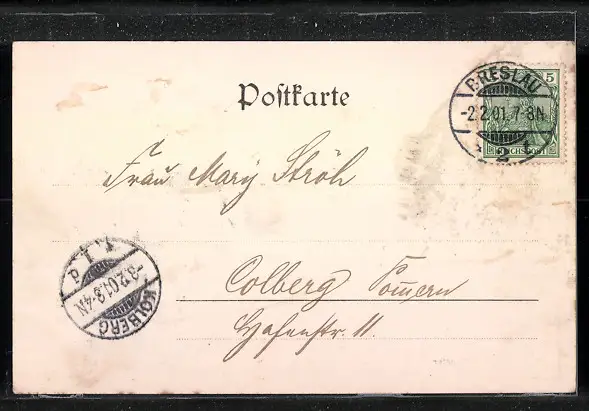 Postkarte
BRESLAU
-2.2.01.7-8N
2
5
REICHSPOST
Frau Mary Ströh
Colberg Pommern
Hafenstr. 11.
KOLBERG
-3.2.01.3-4N